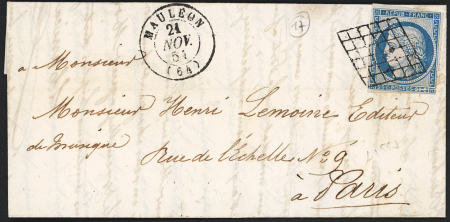 MAULEON
21
NOV.
51
(64)
17
REPUB. FRANC.
à Monsieur
Monsieur Henri Lemoine Editeur
de musique
Rue de l'Echelle No. 9
à Paris